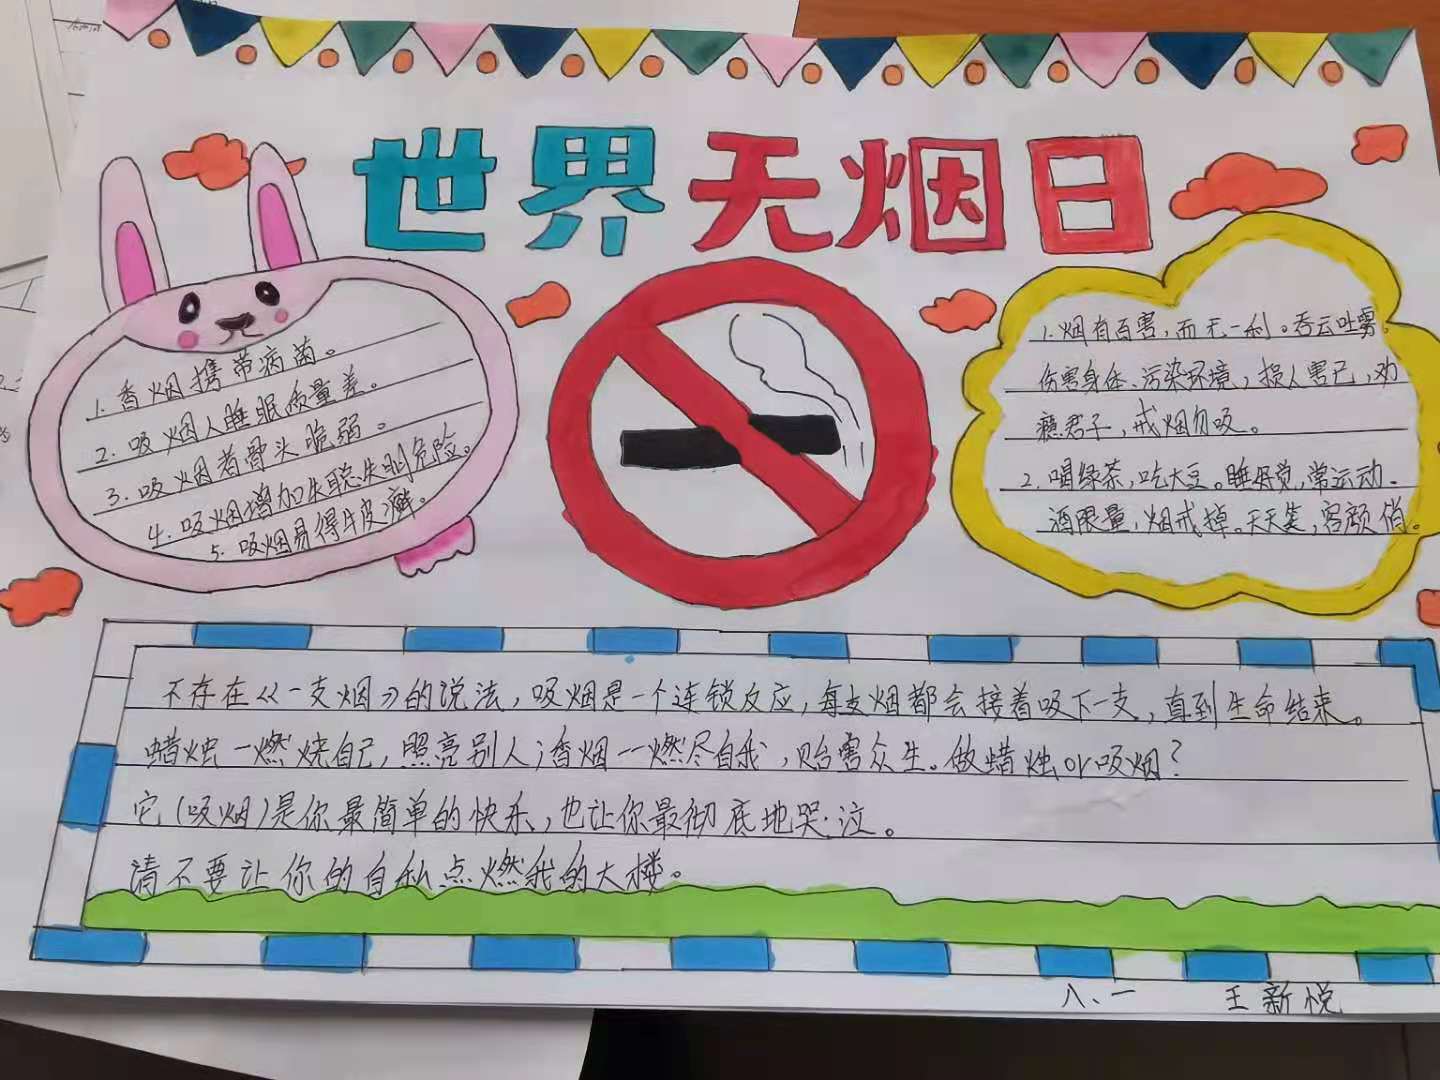 世界无烟日
1. 香烟携带病菌。
2. 吸烟人睡眠质量差。
3. 吸烟者骨头脆弱。
4. 吸烟增加失聪失明危险。
5. 吸烟易得牛皮癣。
1. 烟有百害，而无一利。吞云吐雾。
伤害身体、污染环境，损人害己，劝
瘾君子，戒烟勿吸。
2. 喝绿茶，吃大豆。睡好觉，常运动.
酒限量，烟戒掉。天天笑，容颜俏。
不存在《一支烟》的说法，吸烟是一个连锁反应，每支烟都会接着吸下一支，直到生命结束。
蜡烛一燃烧自己，照亮别人；香烟一燃尽自我，贻害众生。做蜡烛or吸烟？
它（吸烟）是你最简单的快乐，也让你最彻底地哭泣。
请不要让你的自私点燃我的大楼。
八、一 王新悦